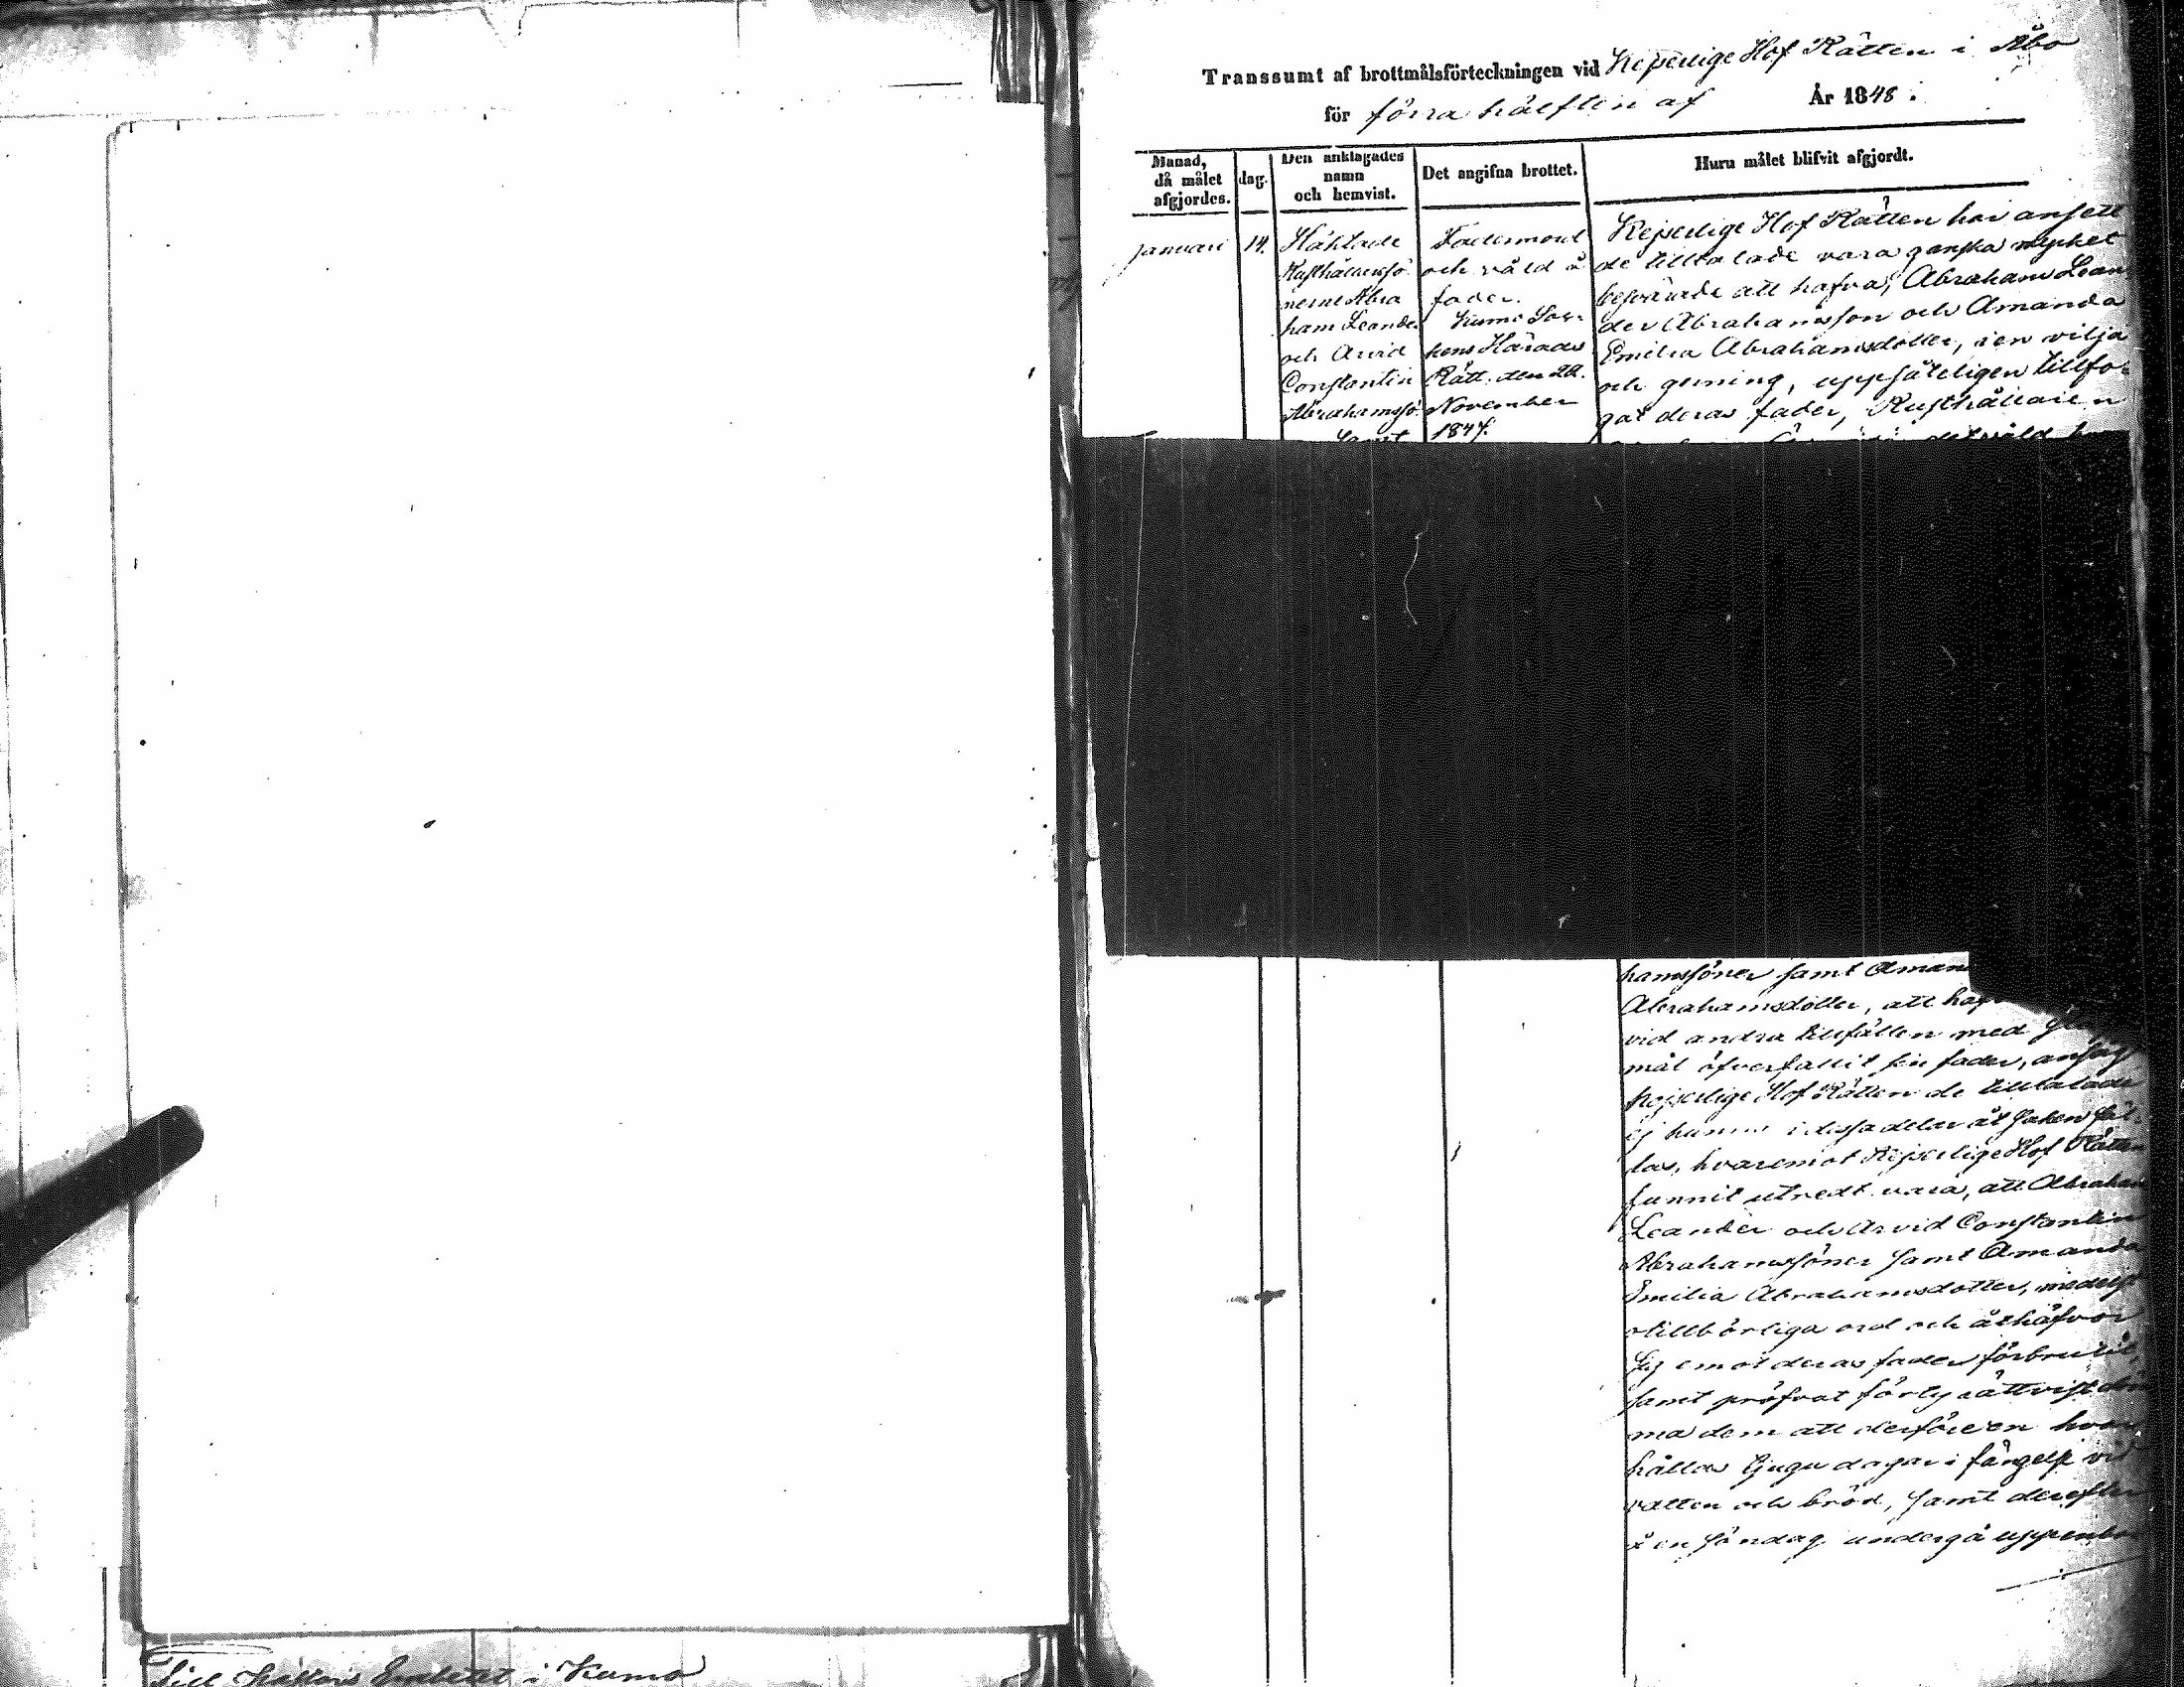 Till Pastors Embetet i Kumo
Transsumt af brottmålsförteckningen vid Kejserlige Hof Rätten i Åbo
för förra hälften af År 1848.
Månad, då målet afgjordes.
dag.
Den anklagades namn och hemvist.
Det angifna brottet.
Huru målet blifvit afgjordt.
Januari
14.
Häktade
Rusthållaresö-
nerne Abra
ham Leander
och Arvid
Constantin
Abrahamssö-
samt
Fadermord
och våld å
fader.
Kumo Soc-
kens Härads
Rätt. den 22.
November
1847.
Kejserlige Hof Rätten har ansett
de tilltalade vara ganska mycket
besvärade att hafva, Abraham Lean
der Abrahamsson och Amanda
Emilia Abrahamsdotter, i en vilja
och gerning, uppsåteligen tillfo-
gat deras fader, Rusthållaren
det våld
hamssöner samt Aman
Abrahamsdotter, att haf
vid andra tillfällen med
mål öfverfallit sin fader, ansåg
Kejserlige Hof Rätten de tilltalade
ej kunna i dessa delar åt saken fäl-
las, hvaremot Kejserlige Hof Rätten
funnit utredt vara, att Abraham
Leander och Arvid Constantin
Abrahamssöner samt Amanda
Emilia Abrahamsdotter, medelst
otillbörliga ord och åthäfvor
sig emot deras fader förbrutit,
samt pröfvat förty rättvist döm
ma dem att derföre en hvar
hållas tjugu dagar i fängelse vid
vatten och bröd, samt derefter
å en söndag undergå uppenba